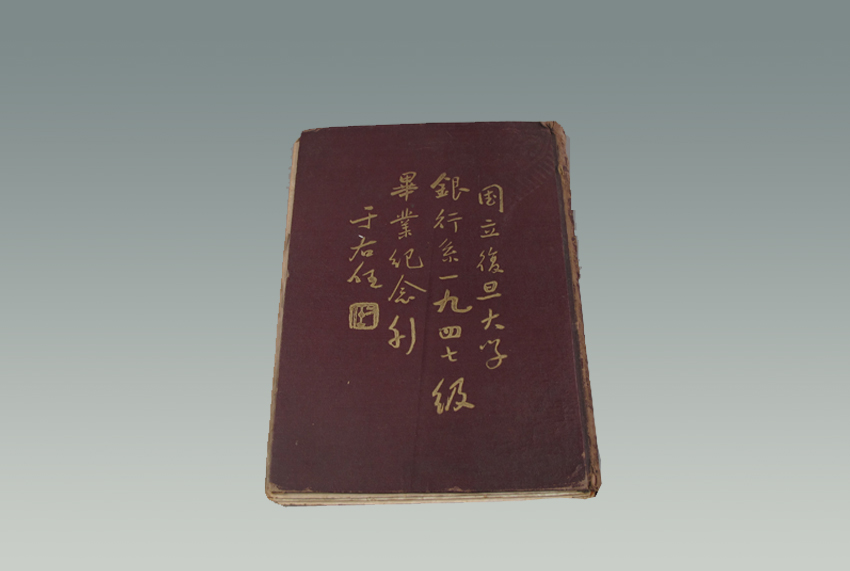 国立復旦大学
銀行系一九四七级
畢業纪念刊
于右任